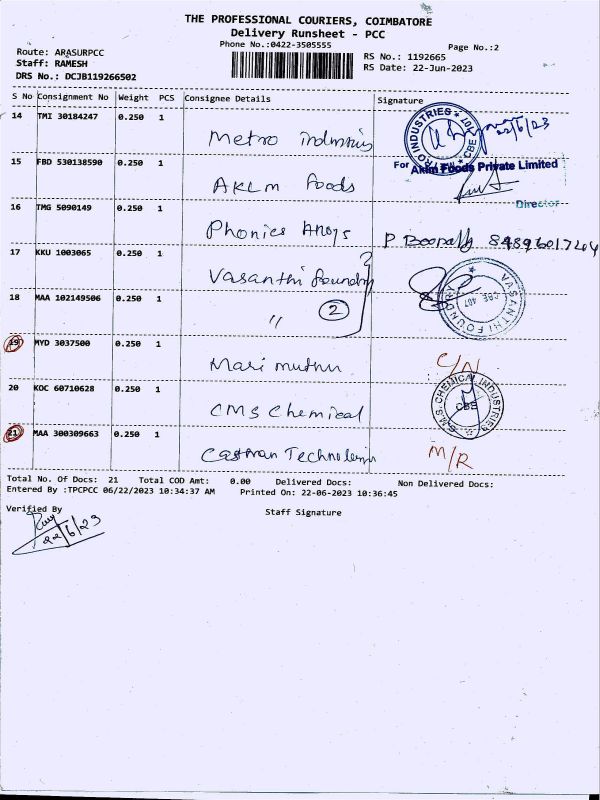 THE PROFESSIONAL COURIERS, COIMBATORE
Delivery Runsheet - PCC
Phone No.:0422-3505555
Page No.:2
Route: ARASURPCC
Staff: RAMESH
DRS No.: DCJB119266502
RS No.: 1192665
RS Date: 22-Jun-2023
S No Consignment No Weight PCS Consignee Details Signature
14 TMI 30184247 0.250 1
Metro industries
22/6/23
15 FBD 530138590 0.250 1
For Aklm Foods Private Limited
AKLM Foods
Director
16 TMG 5090149 0.250 1
Phonics Alloys
17 KKU 1003065 0.250 1
Vasanthi Foundry
VASANTHI FOUNDRY
CBE 407
18 MAA 102149506 0.250 1
" 2
19 MYD 3037500 0.250 1
Mari muthu
20 KOC 60710628 0.250 1
CMS Chemical
C.M.S. CHEMICAL INDUSTRIES
CBE
21 MAA 300309663 0.250 1
M/R
Total No. Of Docs: 21 Total COD Amt: 0.00 Delivered Docs: Non Delivered Docs:
Entered By :TPCPCC 06/22/2023 10:34:37 AM Printed On: 22-06-2023 10:36:45
Verified By Staff Signature
22/6/23